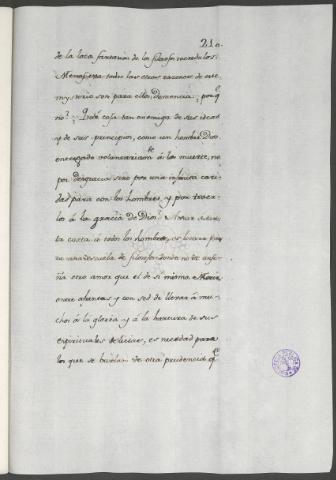 21
de la loca fantasia de los filosofos incredulos.
todas las otras razones de este
mysterio son para ellos demencia, porq.e
no? Qué cosa tan enemiga de sus ideas
y de sus principios, como un hombre Dios
entregado voluntariam.te á la muerte, no
por desgracia sino por una infinita cari-
dad para con los hombres y por traer-
los á la gracia de Dios? Morir
ta costa á todos los hombres, es locura para
una escuela de filosofos donde no se ense-
ña otro amor que el de si mismo. Morir
entre afrentas y con sed de llevar á mu-
chos á la gloria y á la hartura de sus
espirituales delicias, es necedad para
los que se burlan de otra prudencia q.e